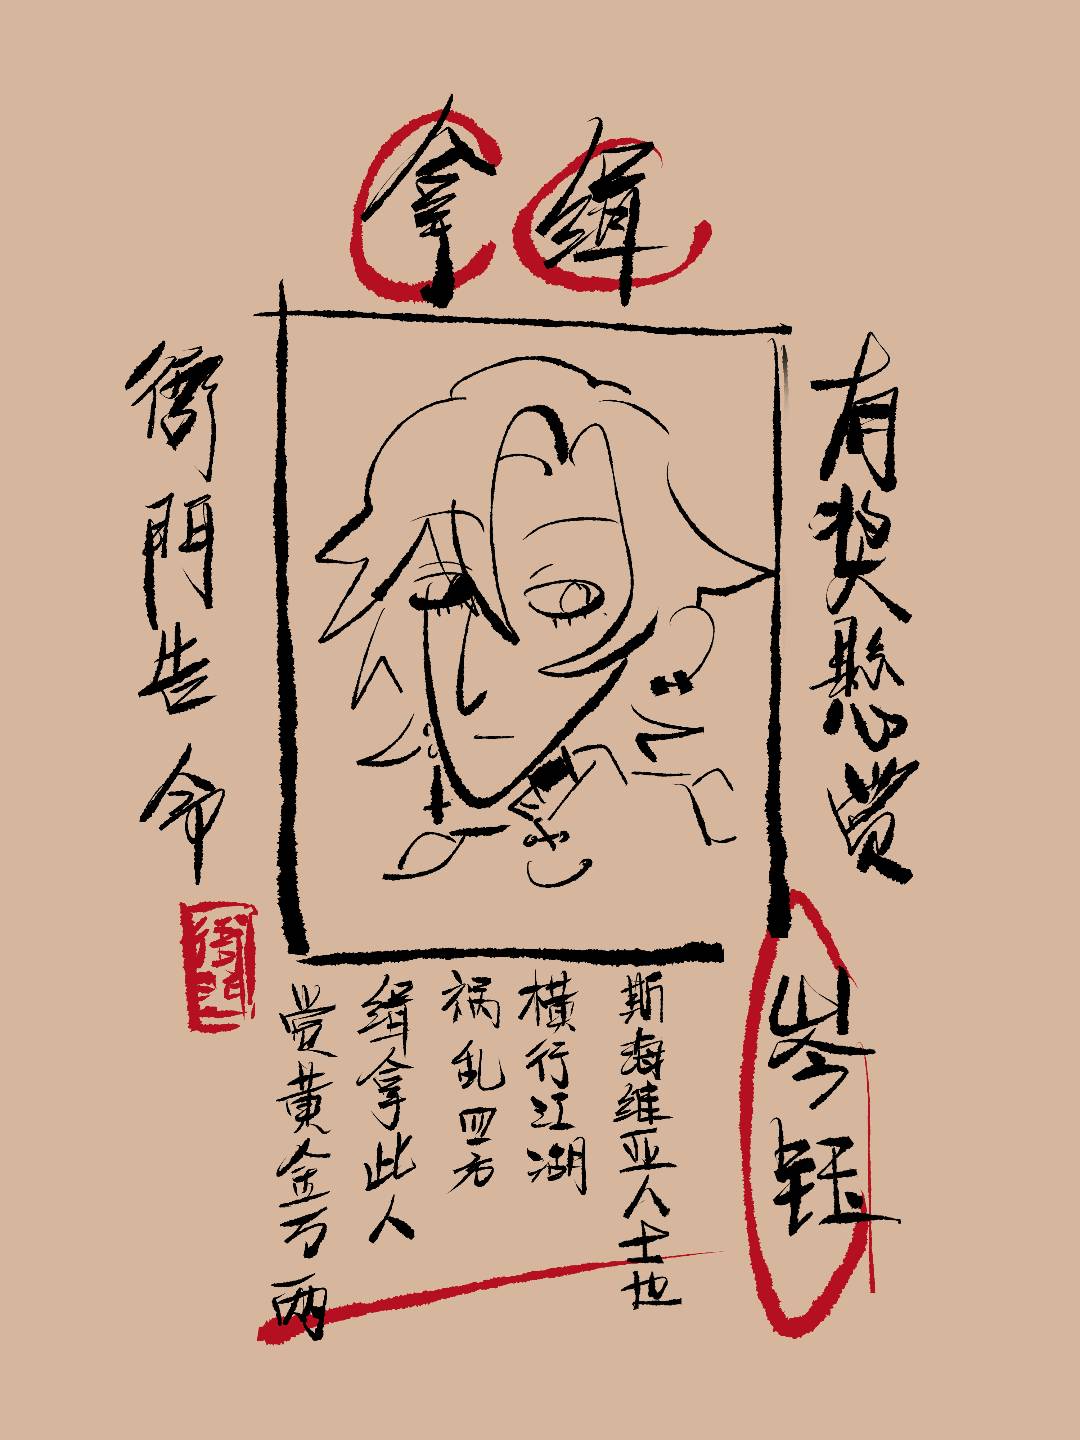 缉拿
有奖懸赏
岑钰
斯海维亚人士也
横行江湖
祸乱四方
缉拿此人
赏黄金万两
衙門告命
衙門